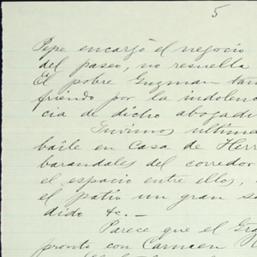 5
Pepe encargó el negocio
del paseo, no resuella
El pobre Guzman tam
friendo por la indolen
cia de dicho abogado
Tuvimos ultima
baile en Casa de Herr
barandales del corredor
el espacio entre ellos,
el patio un gran sa
dido &c. —
Parece que el
pronto con Carmen